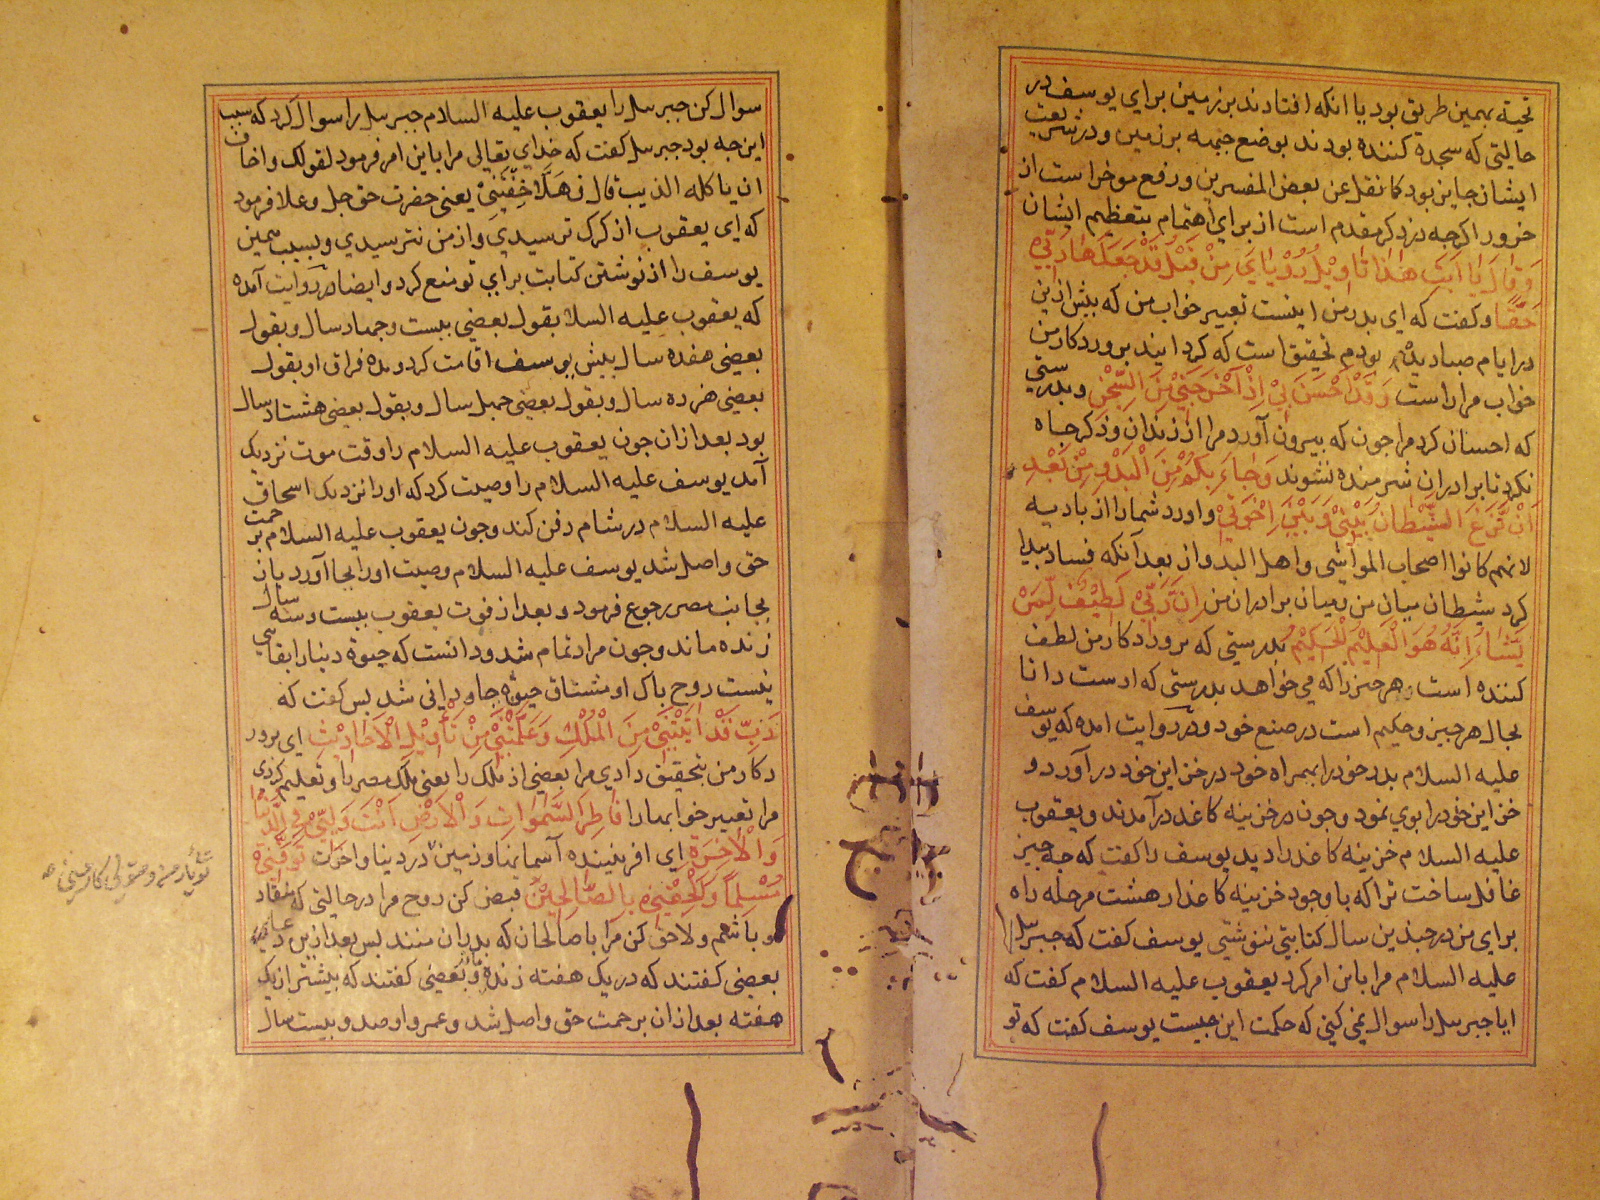 تحیة بهمین طریق بود یا انکه افتادند بر زمین برای یوسف در
حالیتی که سجده کننده بودند بوضع جبهه بر زمین و در شریعت
ایشان جایز بود کما نقل عن بعض المفسرین و رفع موخر است از
خرور اکرچه در ذکر مقدم است از برای اهتمام بتعظیم ایشان
وَقَالَ يَا اَبَتِ هٰذَا تَاوِيْلُ رُؤْيَايَ مِنْ قَبْلُ قَدْ جَعَلَهَا رَبِّيْ
حَقًّا و کفت که ای پدر من اینست تعبیر خواب من که پیش ازین
در ایام صبا دیده بودم تحقیق است که کردانید پروردکار من
خواب مرا راست وَقَدْ اَحْسَنَ بِيْ اِذْ اَخْرَجَنِيْ مِنَ السِّجْنِ و بدرستی
که احسان کرد مرا چون که بیرون آورد مرا از زندان و ذکر چاه
نکرد تا برادران شرمنده نشوند وَجَاءَ بِكُمْ مِنَ الْبَدْوِ مِنْ بَعْدِ
اَنْ نَّزَغَ الشَّيْطَانُ بَيْنِيْ وَبَيْنَ اِخْوَتِيْ و اورد شما را از بادیه
لانهم کانوا اصحاب المواشی و اهل البدو از بعد آنکه فساد پیدا
کرد شیطان میان من و میان برادران من اِنَّ رَبِّيْ لَطِيْفٌ لِّمَنْ
يَشَاءُ اِنَّهُ هُوَ الْعَلِيْمُ الْحَكِيْمُ بدرستی که پروردکار من لطف
کننده است هر چیز را که می خواهد بدرستی که اوست دانا
بحال هر چیز و حکیم است در صنع خود و در روایت امده که یوسف
علیه السلام پدر خود را بهمراه خود در خزاین خود در آورد و
خزاین خود را بوی نمود و چون در خزینه کاغذ در آمدند و یعقوب
علیه السلام خزینه کاغذ را دید یوسف را کفت که چه چیز
غافل ساخت ترا که با وجود خزینه کاغذ از هشت مرحله راه
برای من در چندین سال کتابتی ننوشتی یوسف کفت که جبریل
علیه السلام مرا باین امر کرد یعقوب علیه السلام کفت که
ایا جبریل را سوال نمی کنی که حکمت این چیست یوسف کفت که تو
سوال کن جبریل را یعقوب علیه السلام جبریل را سوال کرد که سبب
این چه بود جبریل کفت که خدای تعالی مرا باین امر فرمود لقولک و اخاف
ان یاکله الذیب قال فَهَلَّا خِفْتَنِيْ یعنی حضرت حق جل و علا فرمود
که ای یعقوب از کرک ترسیدی و از من نترسیدی و بسبب همین
یوسف را از نوشتن کتابت برای تو منع کرد و ایضا در روایت آمده
که یعقوب علیه السلام بقول بعضی بیست و چهار سال و بقول
بعضی هفده سال پیش یوسف اقامت کرد و مده فراق او بقول
بعضی هژده سال و بقول بعضی چهل سال و بقول بعضی هشتاد سال
بود بعد ازان چون یعقوب علیه السلام را وقت موت نزدیک
آمد یوسف علیه السلام را وصیت کرد که او را نزدیک اسحاق
علیه السلام در شام دفن کند و چون یعقوب علیه السلام برحمت
حق واصل شد یوسف علیه السلام وصیت او را بجا آورد باز
بجانب مصر رجوع فرمود و بعد از فوت یعقوب بیست و سه سال
زنده ماند و چون مراد تمام شد و دانست که حیوة دنیا را بقایی
نیست روح پاک او مشتاق حیوة جاودانی شد پس کفت که
رَبِّ قَدْ اٰتَيْتَنِيْ مِنَ الْمُلْكِ وَعَلَّمْتَنِيْ مِنْ تَأْوِيْلِ الْاَحَادِيْثِ ای پرور
دکار من بتحقیق دادی مرا بعضی از ملک را یعنی ملک مصر را و تعلیم کردی
مرا تعبیر خوابها را فَاطِرَ السَّمٰوَاتِ وَالْاَرْضِ اَنْتَ وَلِيِّيْ فِي الدُّنْيَا
وَالْاٰخِرَةِ ای افریننده آسمانها و زمین در دنیا و اخرت تَوَفَّنِيْ
مُسْلِمًا وَّاَلْحِقْنِيْ بِالصَّالِحِيْنَ قبض کن روح مرا در حالتی که منقاد
و باشم و لاحق کن مرا با صالحان که پدران منند پس بعد ازین دعا
بعضی کفتند که در یک هفته زنده و بعضی کفتند که بیشتر از یک
هفته بعد ازان برحمت حق واصل شد و عمر او صد و بیست سال